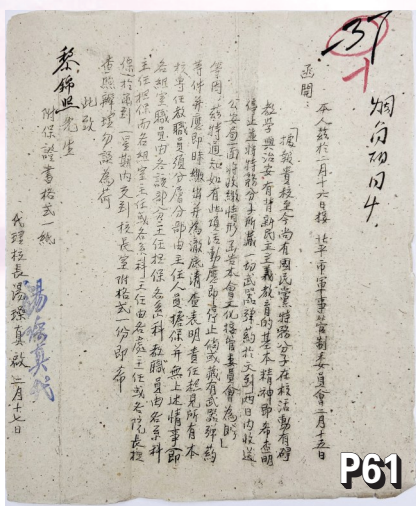 -37
-1
函聞:
本人茲於二月十六日接 北平市軍事管制委員會二月十五日
「據報貴校至今尚有國民黨特務分子在校活動有碍
教學與治安有背新民主主義教育的基本精神即希查明
停止並將特務分子所藏一切武器彈葯於文到兩日內收送
公安局一面將收繳情形函告本會文化接管委員會為盼」
等因,茲特通知如有此項活動應即停止倘或藏有武器彈葯
等件并應即時繳出并為澈底清查表明責任起見所有本
校專任教職員須分層分部由主任人員擔保并無上述情事即
各組室職員由各該部室主任担保各系科教職員由各系科
主任担保而各組室主任或各系科主任由各處主任或各院長担
保於函到一星期內先到校長室附格式一份即希
查照辦理勿誤為何
此致
黎錦熙先生
附保證書格式一紙
代理校長湯璪真啟 二月十七日
湯璪真代
P61